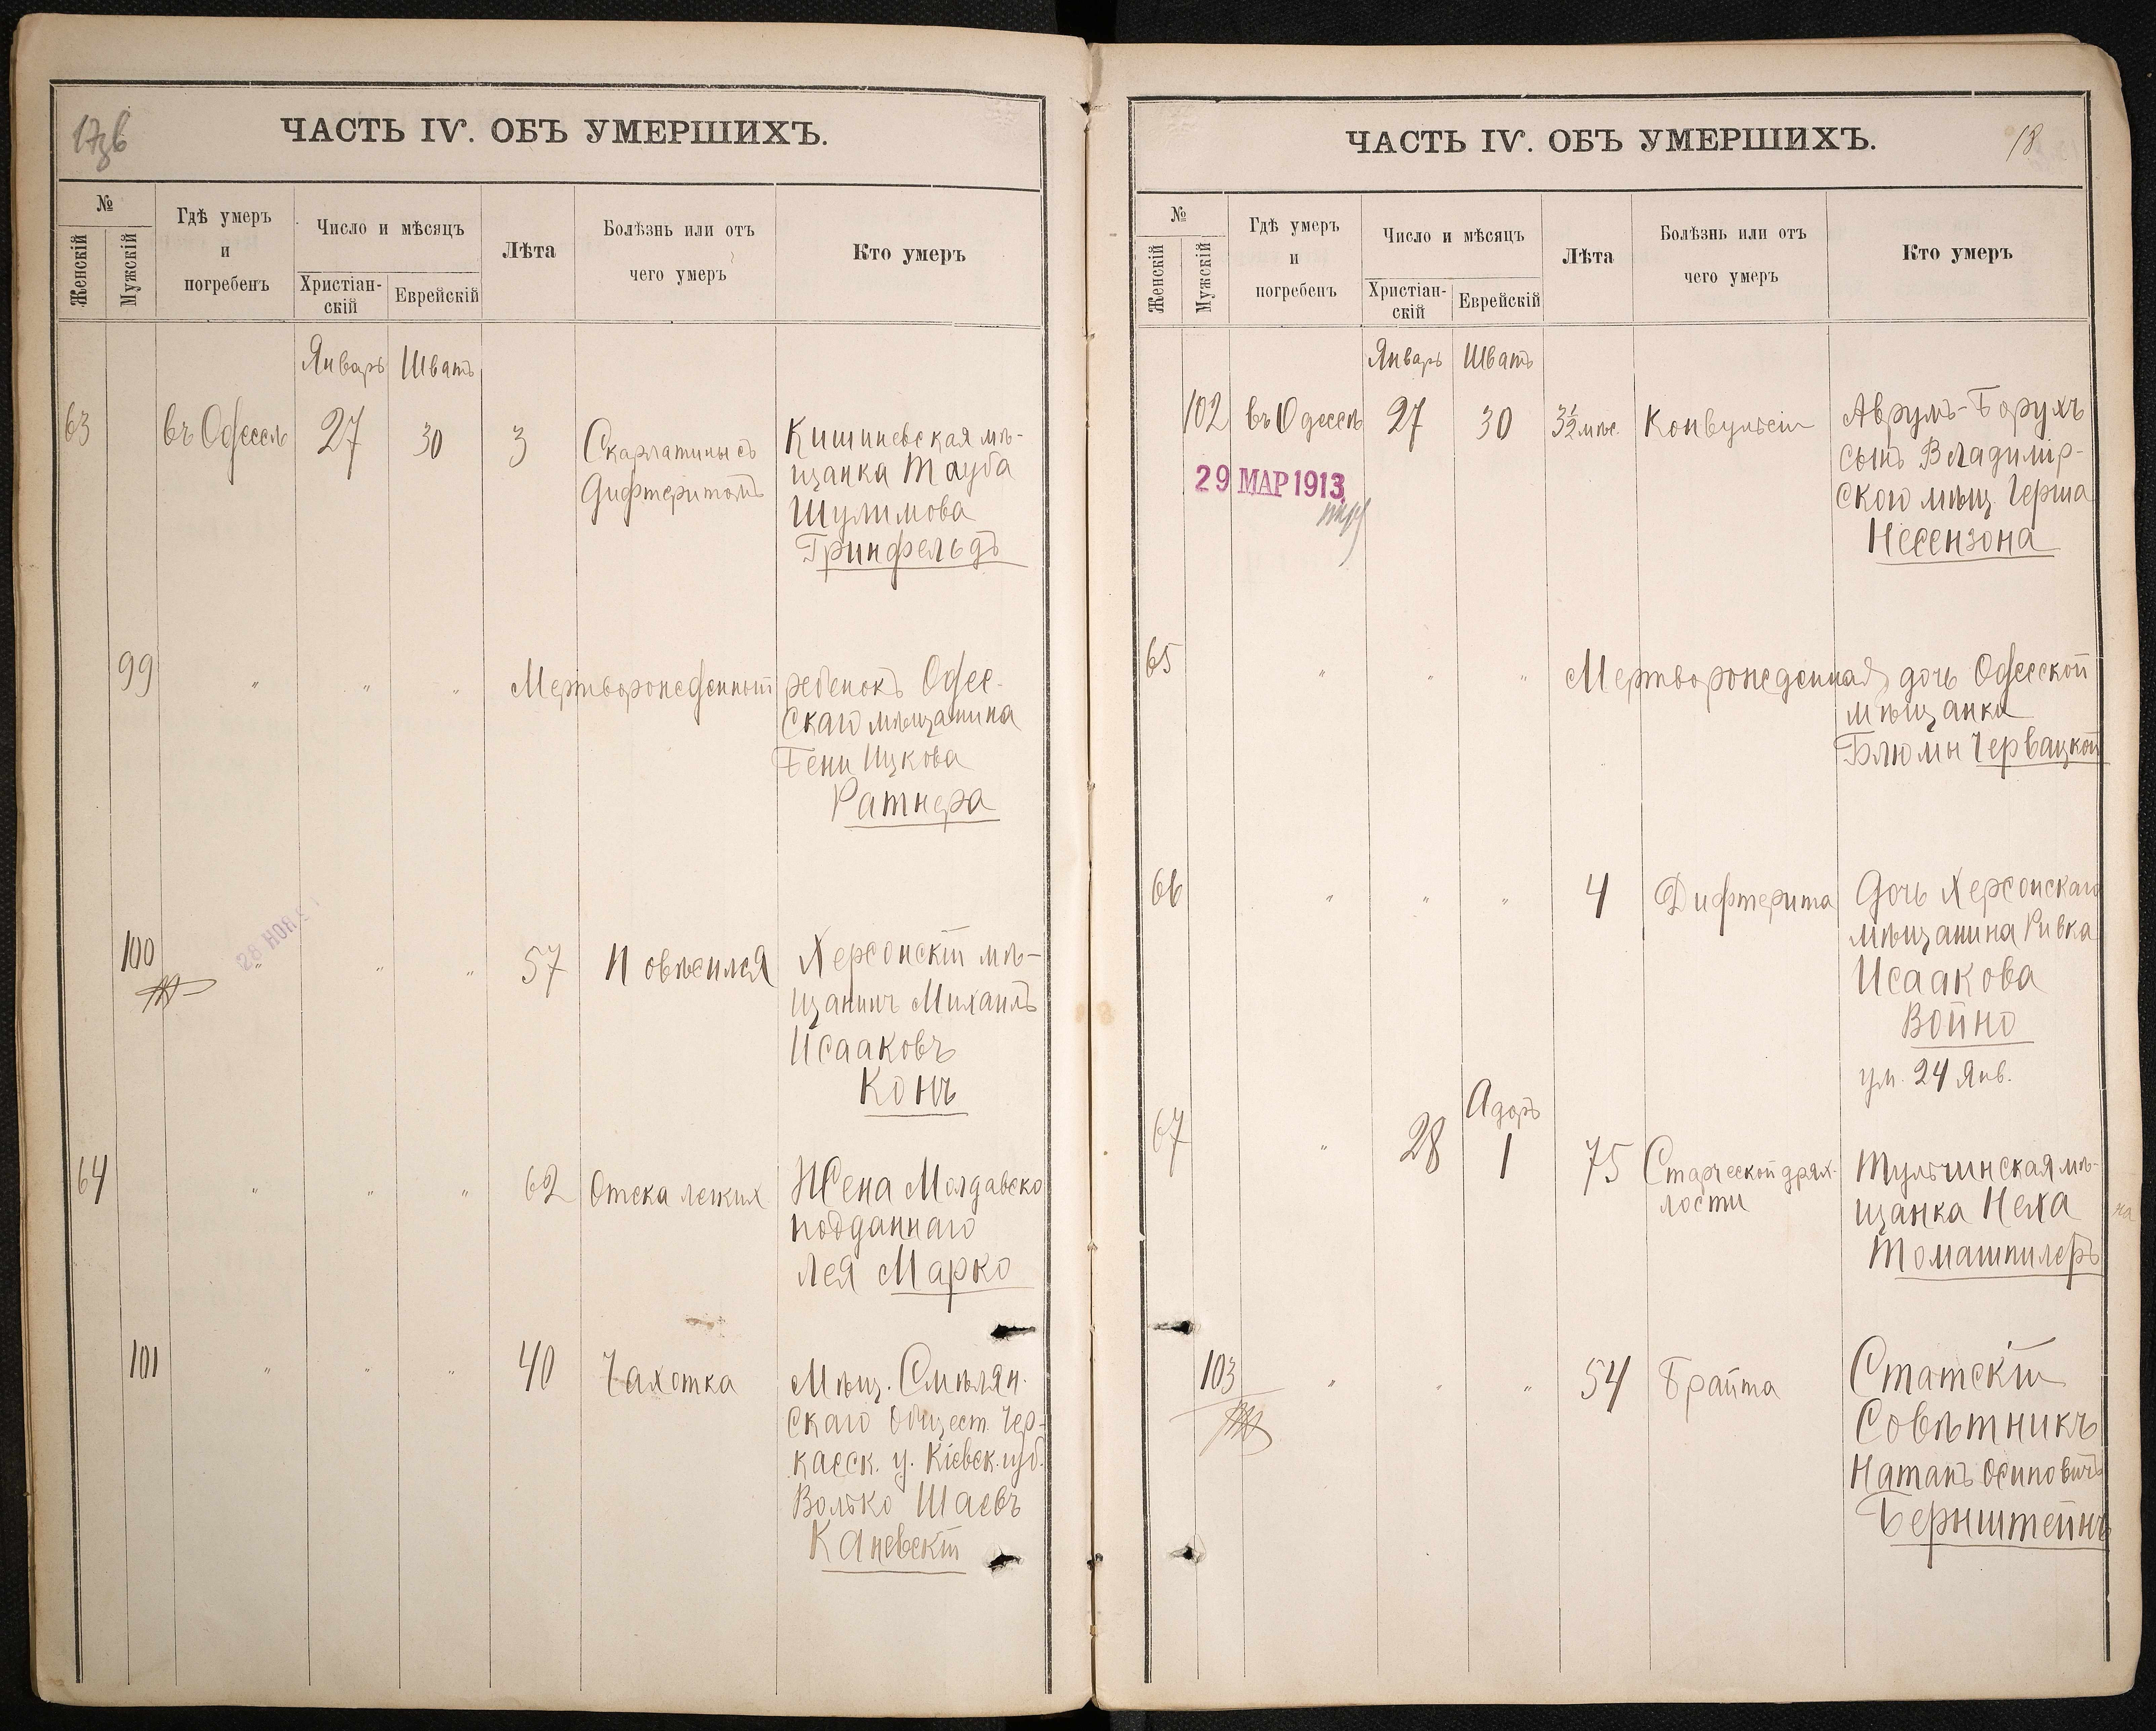 17зв
ЧАСТЬ IV. ОБЪ УМЕРШИХЪ.
№
Женскій
Мужскій
Гдѣ умеръ
и
погребенъ
Число и мѣсяцъ
Христіан-
скій
Еврейскій
Лѣта
Болѣзнь или отъ
чего умеръ
Кто умеръ
Январь Шватъ
63 въ Одессѣ 27 30 3 Скарлатины съ
Дифтеритомъ
Кишиневская мѣ-
щанка Тауба
Шулимова
Гринфельдъ
99 " " " Мертворожденный ребенокъ Одес-
скаго мѣщанина
Бени Ицкова
Ратнера
28 НОЯ
100 " " " 57 Повѣсился Херсонскій мѣ-
щанинъ Михаилъ
Исааковъ
Конъ
64 " " " 62 Отека легкихъ Жена Молдавско
подданнаго
Лея Марко
101 " " " 40 Чахотка Мѣщ. Смѣлян.
скаго Общест. Чер-
касск. у. Кіевск. губ.
Волько Шаевъ
Каневскій
ЧАСТЬ IV. ОБЪ УМЕРШИХЪ.
18
№
Женскій
Мужскій
Гдѣ умеръ
и
погребенъ
Число и мѣсяцъ
Христіан-
скій
Еврейскій
Лѣта
Болѣзнь или отъ
чего умеръ
Кто умеръ
Январь Шватъ
102 въ Одессѣ 27 30 3½ мѣс. Конвульсіи Аврумъ-Борухъ
сынъ Владимір-
ского мѣщ Герша
Несензона
29 МАР 1913
65 " " " Мертворожденная дочь Одесской
мѣщанки
Блюмы Червацкой
66 " " " 4 Дифтерита Дочь Херсонскаго
мѣщанина Ривка
Исаакова
Войно
ум. 24 Янв.
Адаръ
67 " 28 1 75 Старческой дрях-
лости
Тульчинская мѣ-
щанка Неха
Томашпилеръ
на
103 " " " 54 Брайта Статскій
Совѣтникъ
Натанъ Осиповичъ
Бернштейнъ